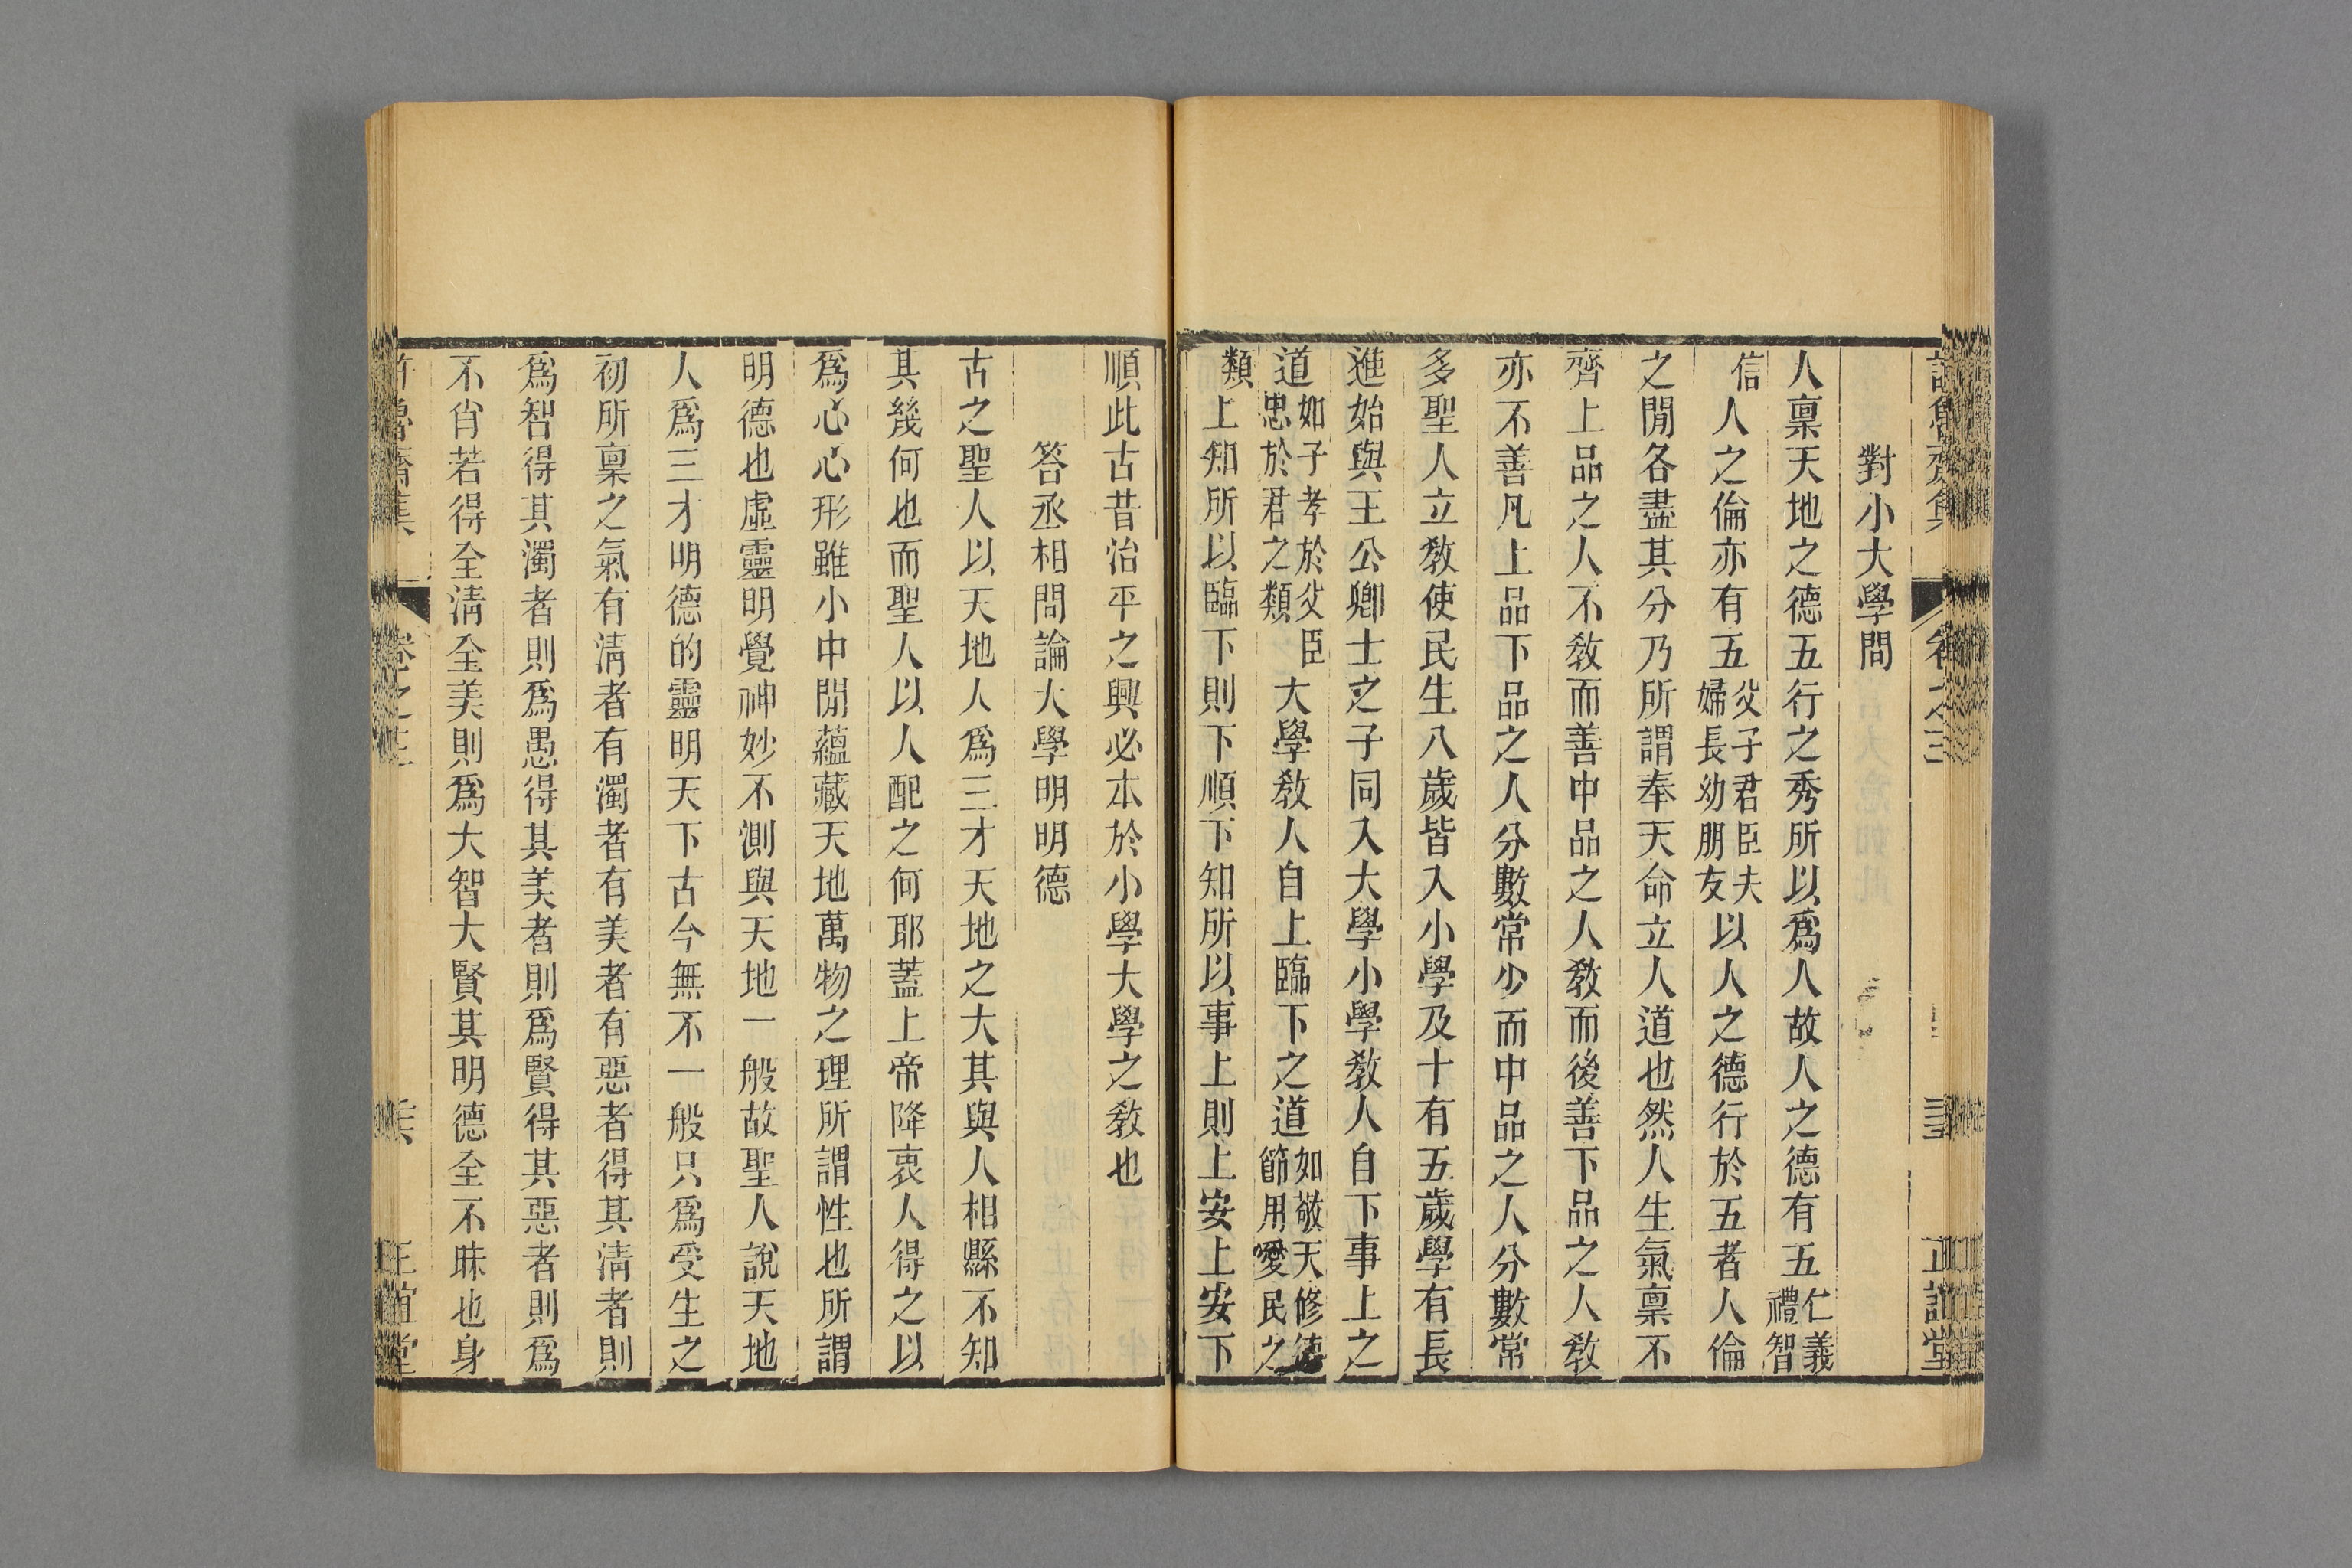 對小大學問
人稟天地之德五行之秀所以爲人故人之德有五仁義禮智
信人之倫亦有五父子君臣夫婦長幼朋友以人之德行於五者人倫
之閒各盡其分乃所謂奉天命立人道也然人生氣稟不
齊上品之人不敎而善中品之人敎而後善下品之人敎
亦不善凡上品下品之人分數常少而中品之人分數常
多聖人立敎使民生八歲皆入小學及十有五歲學有長
進始與王公卿士之子同入大學小學敎人自下事上之
道如子孝於父臣忠於君之類大學敎人自上臨下之道如敬天修德節用愛民之
類上知所以臨下則下順下知所以事上則上安上安下
順此古昔治平之興必本於小學大學之敎也
答丞相問論大學明明德
古之聖人以天地人爲三才天地之大其與人相縣不知
其幾何也而聖人以人配之何耶蓋上帝降衷人得之以
爲心心形雖小中閒蘊藏天地萬物之理所謂性也所謂
明德也虛靈明覺神妙不測與天地一般故聖人說天地
人爲三才明德的靈明天下古今無不一般只爲受生之
初所稟之氣有淸者有濁者有美者有惡者得其淸者則
爲智得其濁者則爲愚得其美者則爲賢得其惡者則爲
不肖若得全淸全美則爲大智大賢其明德全不昧也身